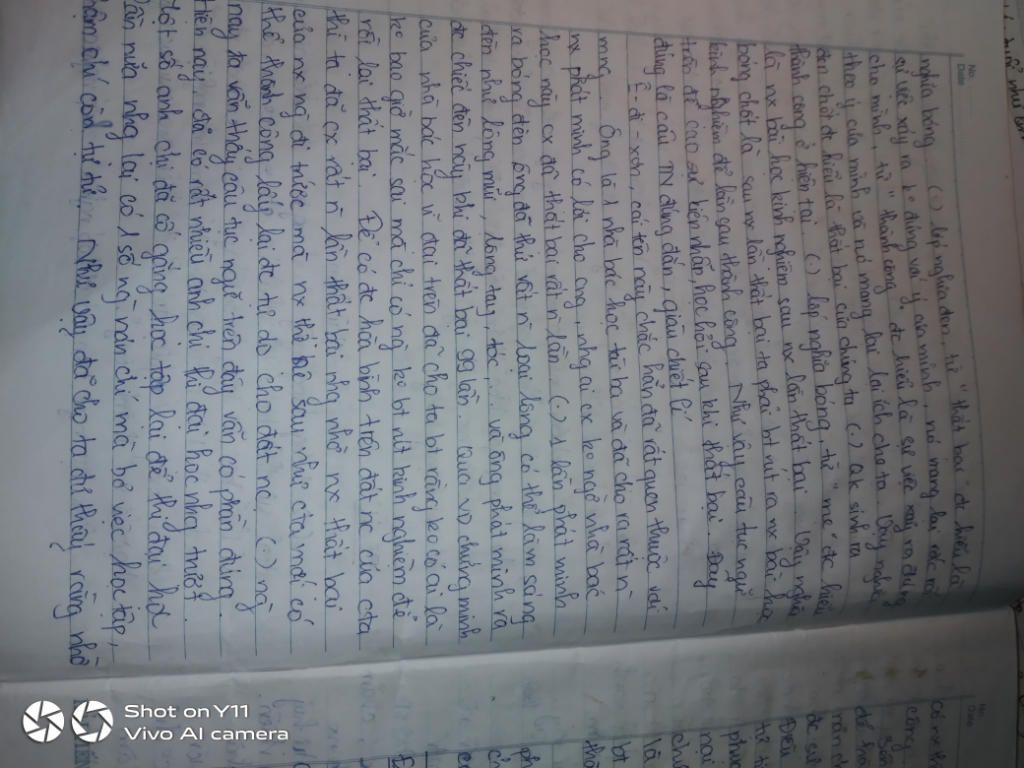 No.
Date
nghĩa bóng. (.) lớp nghĩa đen, từ "thất bại" đc hiểu là
sự việc xảy ra ko đúng với ý của mình, nó mang lại rắc rối
cho mình, từ "thành công" đc hiểu là sự việc xảy ra đúng
theo ý của mình và nó mang lại lợi ích cho ta. Vậy nghĩa
đen chốt đc hiểu là thất bại của chúng ta (.) qk sinh ra
thành công ở hiện tại. (.) lớp nghĩa bóng, từ "mẹ" đc hiểu
là nx bài học kinh nghiệm sau nx lần thất bại. Vậy nghĩa
bóng chốt là sau nx lần thất bại ta phải bt rút ra nx bài học
kinh nghiệm để lần sau thành công. Như vậy câu tục ngữ
trên đề cao sự bền nhẫn, học hỏi sau khi thất bại. Đây
đúng là câu TN đúng đắn, giàu triết lí.
Ê-đi-xơn, cái tên này chắc hẳn đã rất quen thuộc với
mng. Ông là 1 nhà bác học tài ba và đã cho ra rất n
nx phát minh có lợi cho cng, nhg ai cx ko ngờ nhà bác
học này cx đã thất bại rất n lần. (.) 1 lần phát minh
ra bóng đèn ông đã thử rất n loại lông có thể làm sáng
đèn như lông mũi, lông tay, tóc, và ông phát minh ra
đc chiếc đèn này khi đã thất bại 99 lần. Qua vd chứng minh
của nhà bác học vĩ đại trên đã cho ta bt rằng ko có ai là
ko bao giờ mắc sai mà chỉ có ng ko bt rút kinh nghiệm để
rồi lại thất bại. Để có đc hòa bình trên đất nc của cta
thì ta đã cx rất n lần thất bại nhg nhờ nx thất bại
của nx ng đi trước mà nx thế hệ sau như cta mới có
thể thành công lấy lại đc tự do cho đất nc. (.) ng
nay ta vẫn thấy câu tục ngữ trên đây vẫn có phần đúng.
Hiện nay đã có rất nhiều anh chị thi đại học nhg trượt.
Một số anh chị đã cố gắng học tập lại để thi đại học
lần nữa nhg lại có 1 số ng nản chí mà bỏ việc học tập,
thậm chí còn tự tử. Như vậy đã cho ta đc thấy rằng nhờ
Shot on Y11
Vivo AI camera